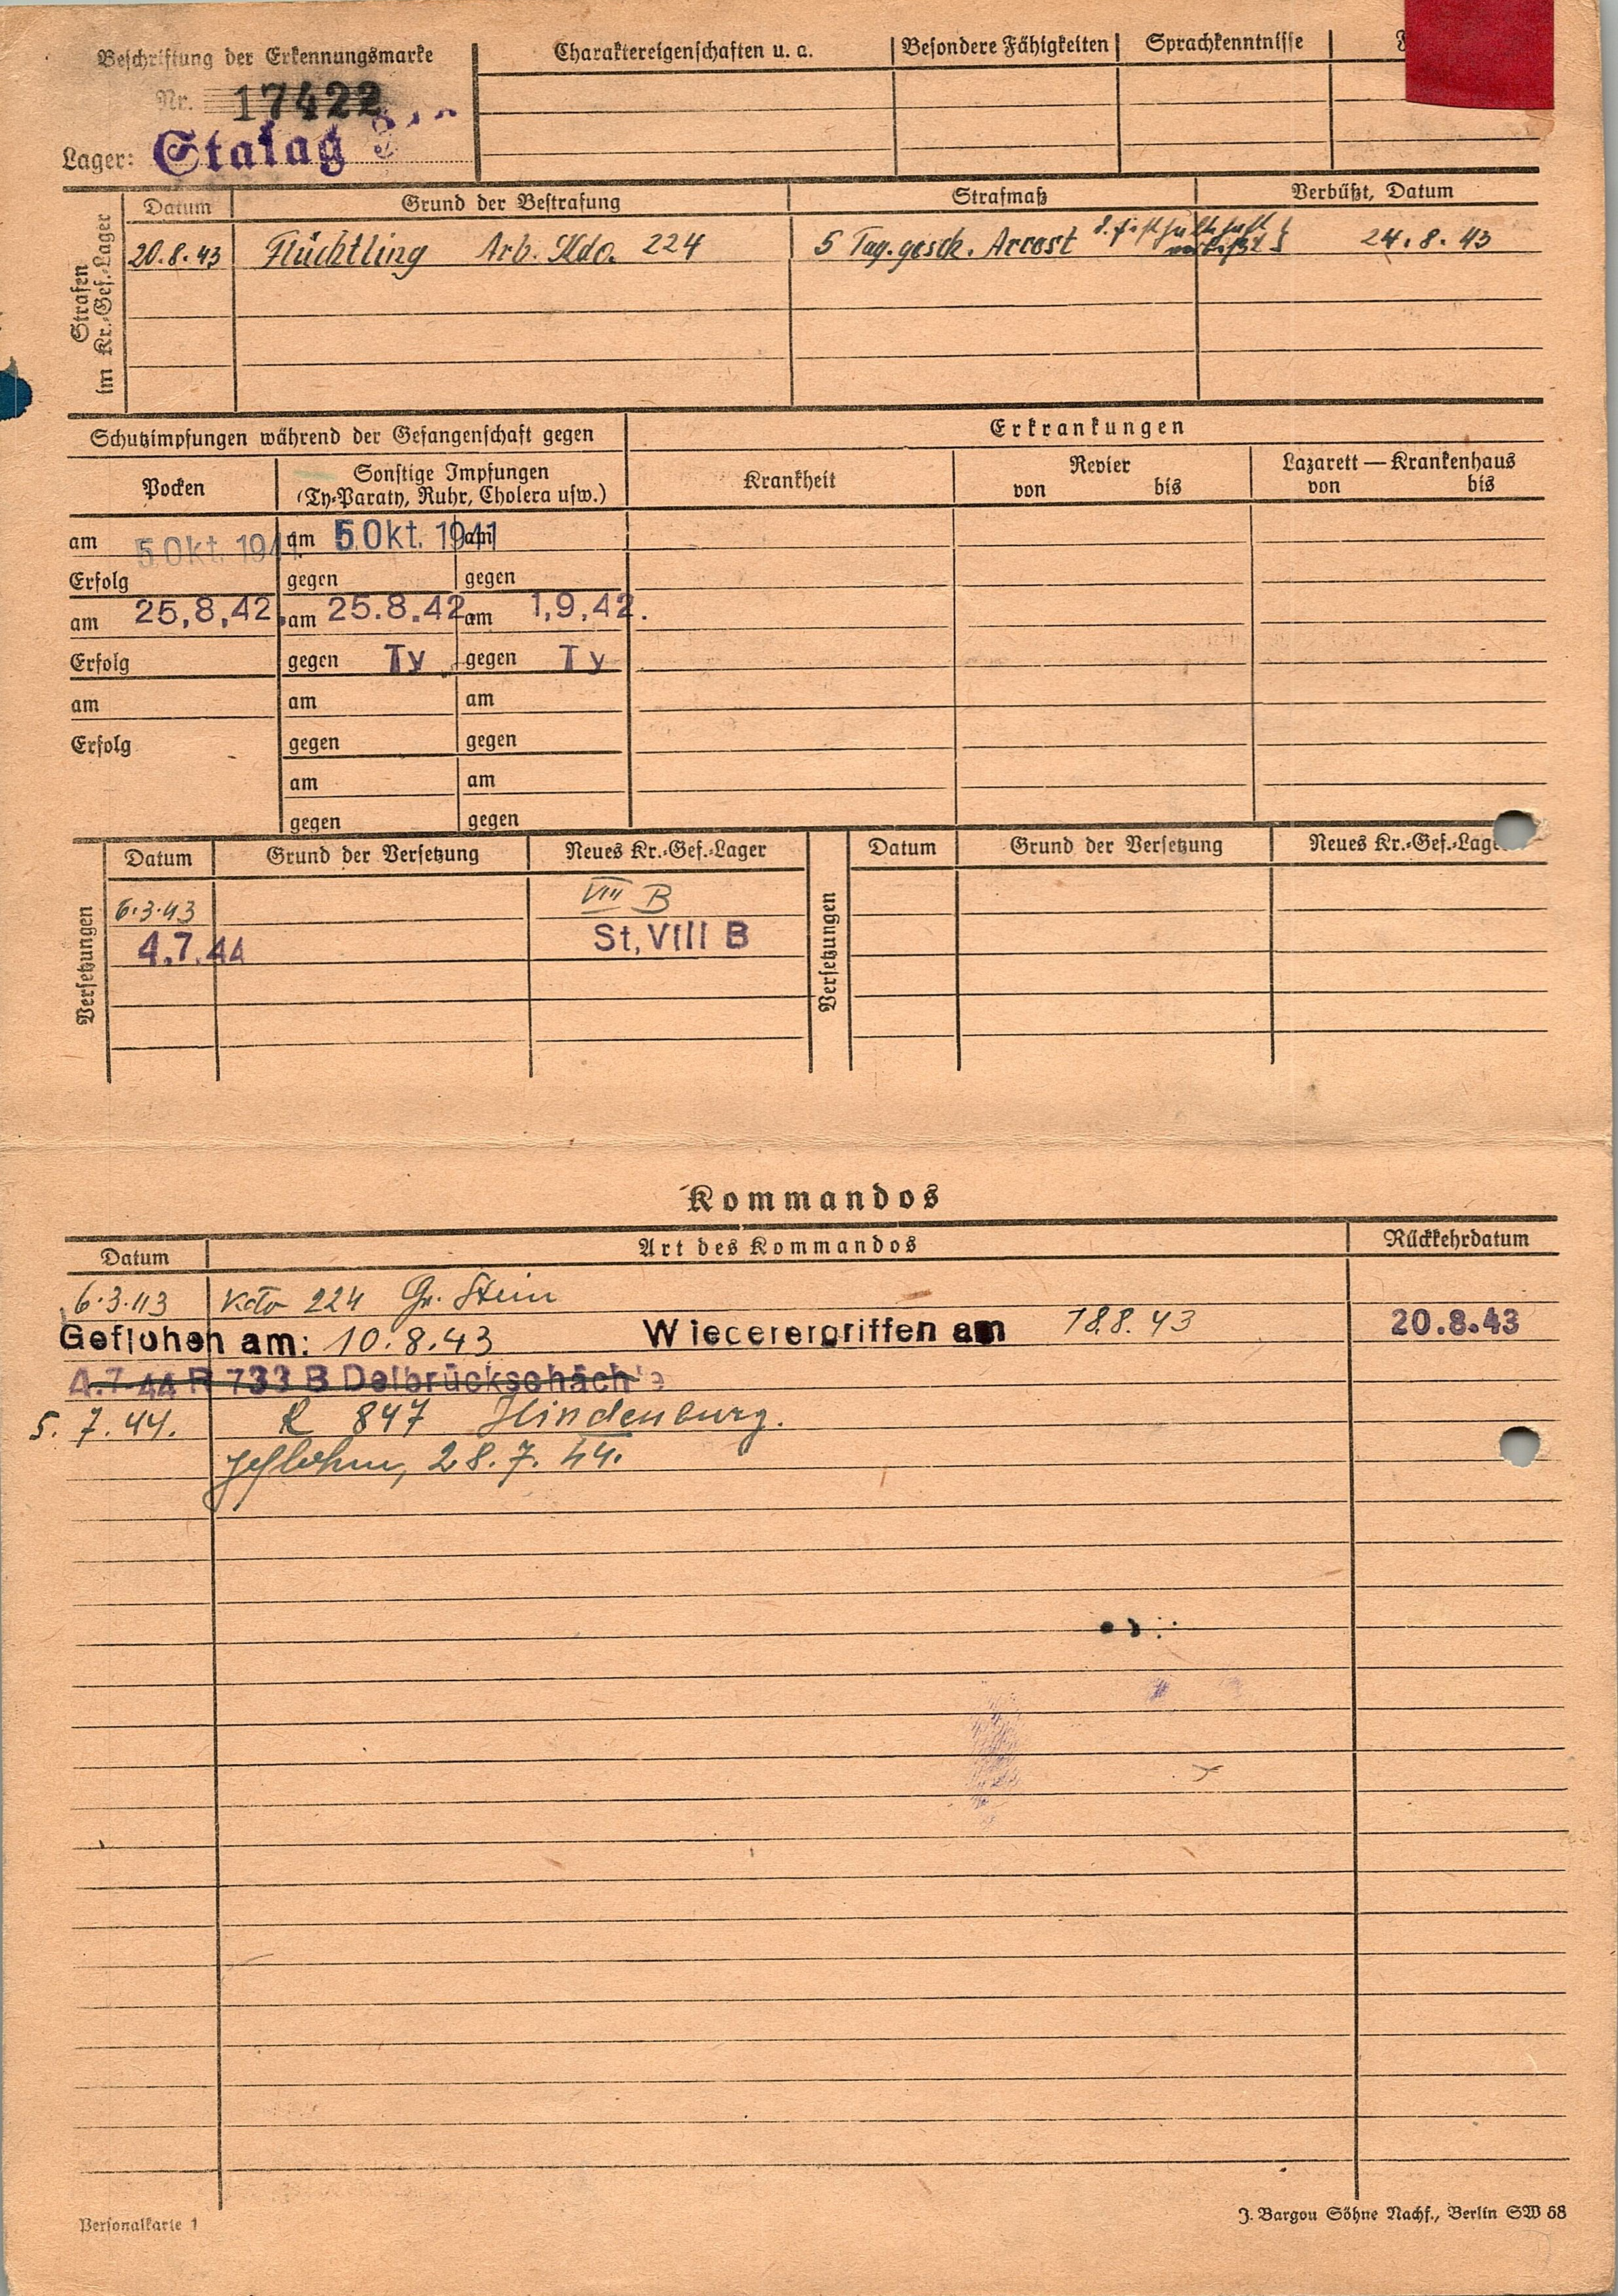 Beschriftung der Erkennungsmarke
Nr. 17422
Lager: Stalag
Charaktereigenschaften u. a. Besondere Fähigkeiten Sprachkenntnisse
Strafen im Kr.-Gef.-Lager
Datum Grund der Bestrafung Strafmaß Verbüßt, Datum
20.8.43 Flüchtling Arb. Kdo. 224 5 Tag. gesch. Arrest 24.8.43
verbüßt
Schutzimpfungen während der Gefangenschaft gegen Erkrankungen
Pocken Sonstige Impfungen
(Ty-Paraty, Ruhr, Cholera usw.)
Krankheit Revier Lazarett — Krankenhaus
von bis von bis
am 5 Okt. 1941 am 5 Okt. 1941 am
Erfolg gegen gegen
am 25,8,42. am 25.8.42. am 1,9,42.
Erfolg gegen Ty gegen Ty
am am am
Erfolg gegen gegen
am am
gegen gegen
Versetzungen
Datum Grund der Versetzung Neues Kr.-Gef.-Lager
6.3.43 VIII B
4.7.44 St, VIII B
Versetzungen
Datum Grund der Versetzung Neues Kr.-Gef.-Lage
Kommandos
Datum Art des Kommandos Rückkehrdatum
6.3.43 Kdo 224 Gr. Stein
Geflohen am: 10.8.43 Wiecerergriffen am 18.8.43 20.8.43
4.7.44 R 733 B Delbrückschächte
5.7.44. R 847 Hindenburg.
geflohen, 28.7.44.
Personalkarte 1
J. Bargou Söhne Nachf., Berlin SW 68